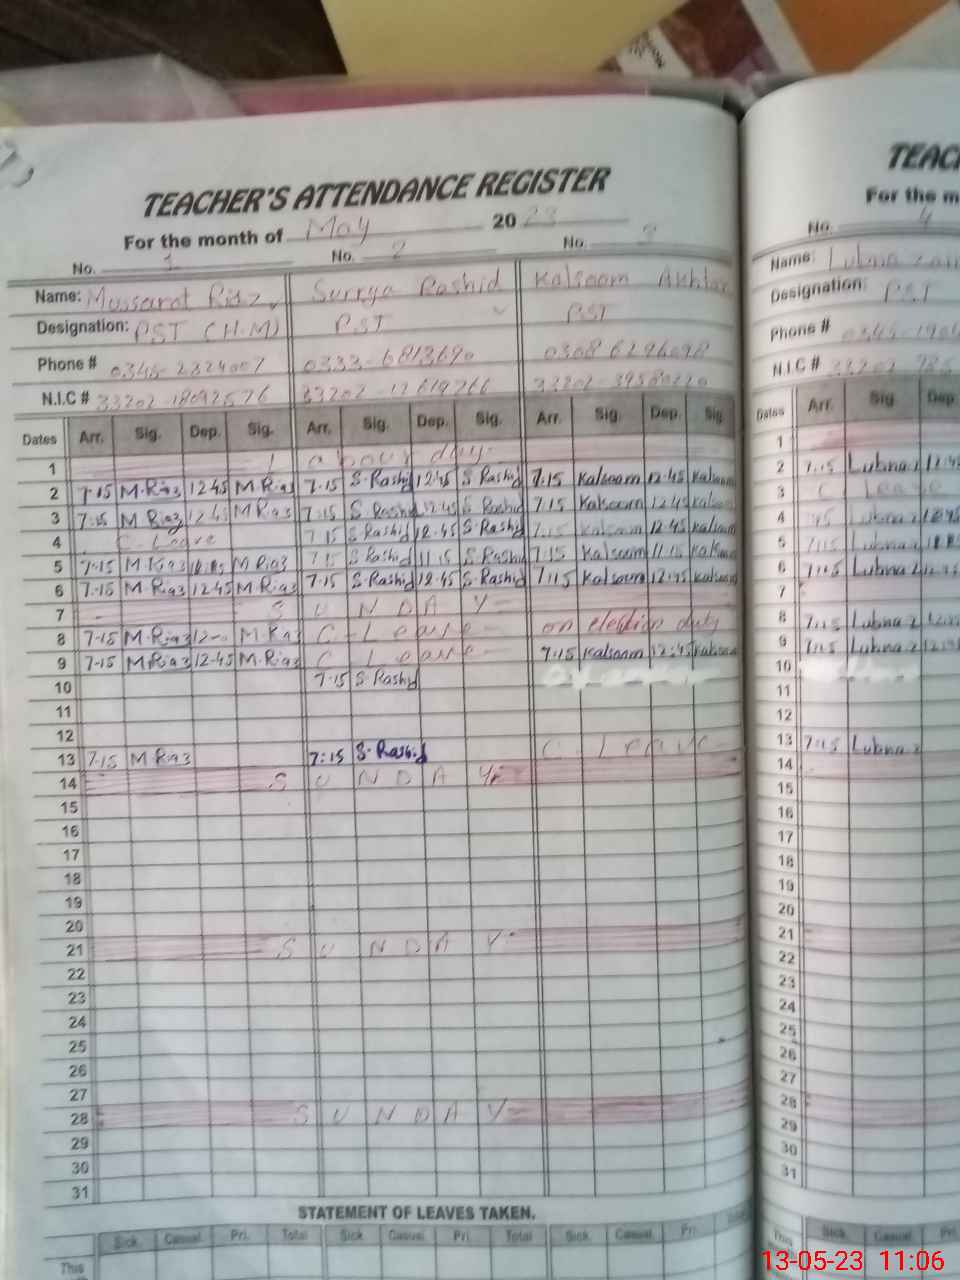 TEACHER'S ATTENDANCE REGISTER
For the month of May 2023
No. 1 No. 2 No. 3
Name: Mussarat Riaz Surrya Rashid Kalsoom Akhtar
Designation: PST (H.M) PST PST
Phone # 0333-6813690 03086296098
N.I.C # 33202-18092576 33202-12619266
Dates Arr. Sig. Dep. Sig. Arr. Sig. Dep. Sig. Arr. Sig. Dep. Sig.
1 labour day
2 7-15 M.Riaz 12-45 M.Riaz 7-15 S.Rashid 12-45 S.Rashid 7.15 Kalsoom 12-45 Kalsoom
3 7:15 M Riaz 12-45 M Riaz 7:15 S.Rashid 12.45 S.Rashid 7.15 Kalsoom 12.45 Kalsoom
4 C-Leave 7.15 S.Rashid 12.45 S.Rashid 7.15 Kalsoom 12.45 Kalsoom
5 7-15 M.Riaz M.Riaz 7.15 S.Rashid 11.15 S.Rashid 7.15 Kalsoom 11.15 Kalsoom
6 7.15 M.Riaz 12.45 M.Riaz 7.15 S.Rashid 12.45 S.Rashid 7:15 Kalsoom 12.45 Kalsoom
7 SUNDAY
8 7-15 M.Riaz M.Riaz C-Leave on election duty
9 7-15 M.Riaz 12-45 M.Riaz C Leave 7:15 Kalsoom 12:45 Kalsoom
10 7.15 S.Rashid
11
12
13 7-15 M Riaz 7:15 S.Rashid C-Leave
14 SUNDAY
15
16
17
18
19
20
21 SUNDAY
22
23
24
25
26
27
28 SUNDAY
29
30
31
STATEMENT OF LEAVES TAKEN.
Sick. Casual. Pri. Total Sick Casual. Pri. Total Sick. Casual. Pri.
This
TEAC
For the m
No. 4
Name: Lubna
Designation: PST
Phone #
N.I.C #
Dates Arr. Sig. Dep.
1
2 7.15 Lubna
3 C Leave
4 Lubna
5 7.15 Lubna
6 7.15 Lubna
7
8 7.15 Lubna
9 7.15 Lubna
10
11
12
13 7:15 Lubna
14
15
16
17
18
19
20
21
22
23
24
25
26
27
28
29
30
31
This Sick Casual.
13-05-23 11:06